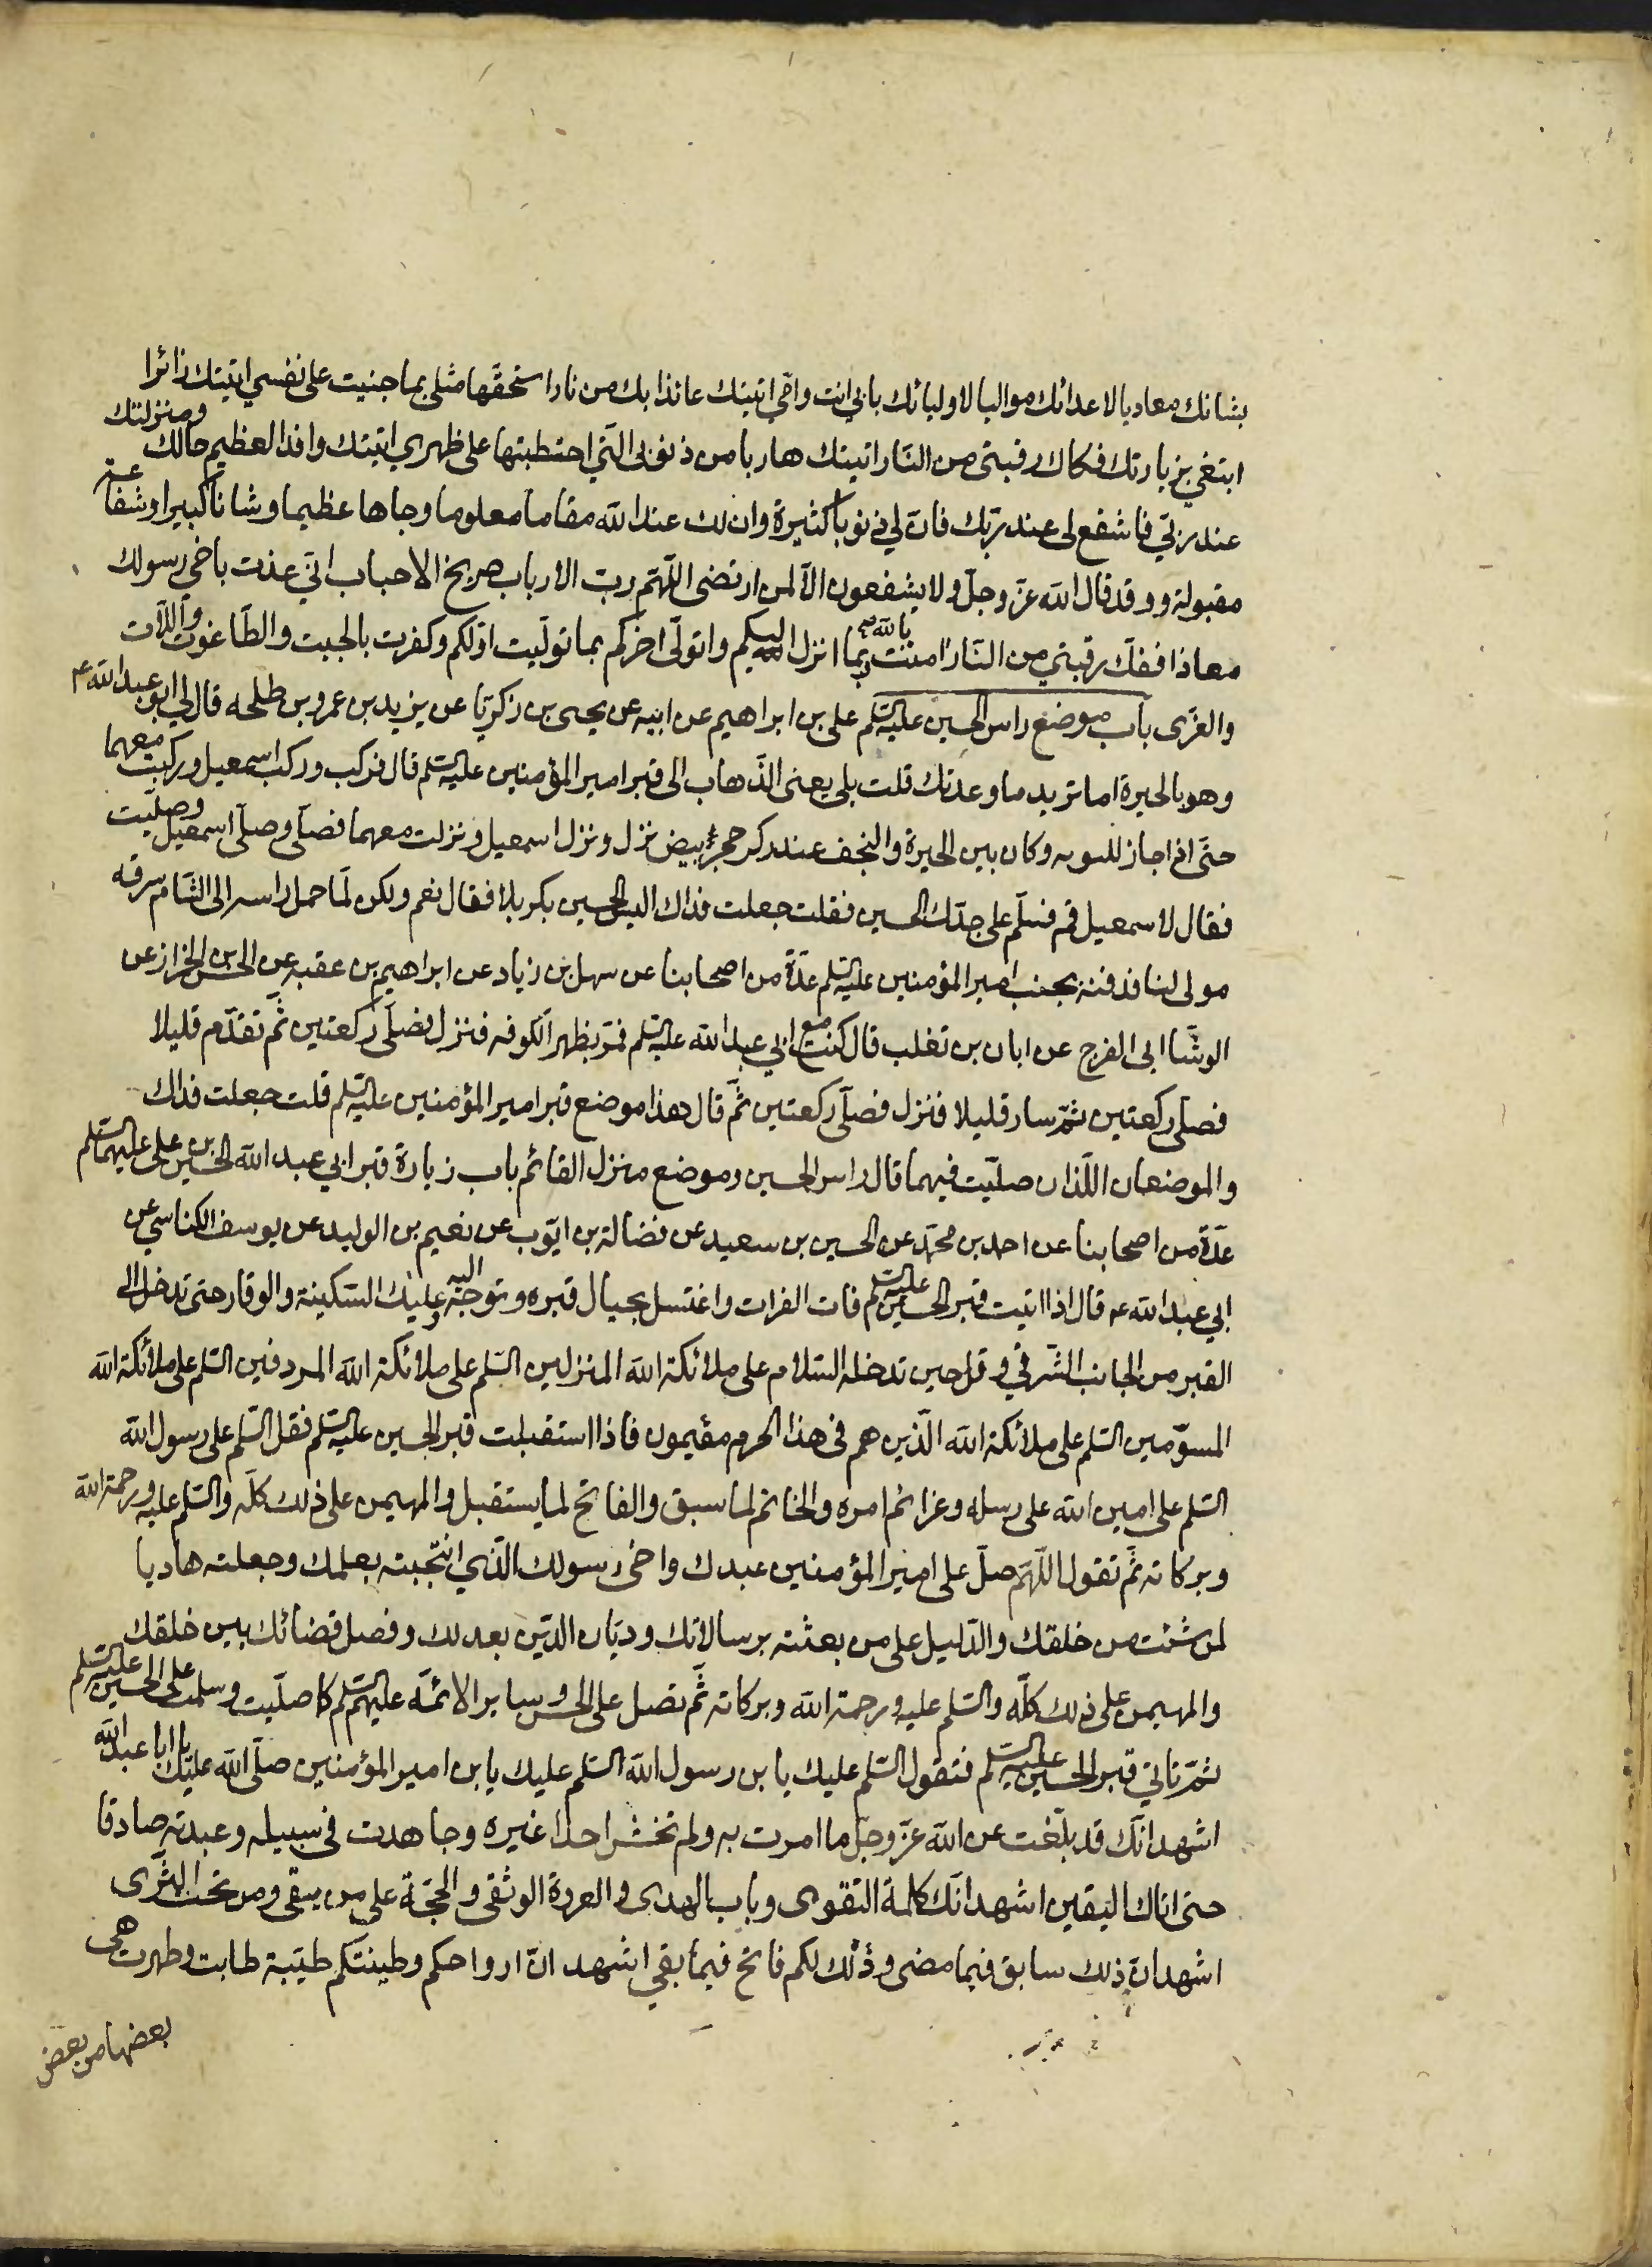 بشانك معاديا لاعدائك مواليا لاوليائك بابي انت وامّي اتيتك عائذا بك من نار استحقّها مثلي بما جنيت على نفسي اتيتك زائرا
ابتغي بزيارتك فكاك رقبتي من النّار اتيتك هاربا من ذنوبي الّتي احتطبتها على ظهري اتيتك وافدا لعظيم حالك ومنزلتك
عند ربّي فاشفع لي عند ربّك فانّ لي ذنوبا كثيرة وان لك عند الله مقاما معلوما وجاها عظيما وشانا كبيرا وشفاعة
مقبولة و وقد قال الله عزّ وجلّ ولا يشفعون الّا لمن ارتضى اللّهمّ ربّ الارباب صريخ الاحباب انّي عذت باخي رسولك
معاذا ففكّ رقبتي من النّار امنت بالله وبما انزل اليكم واتولّى اخركم بما تولّيت اوّلكم وكفرت بالجبت والطّاغوت واللّات
والعزّى باب موضع راس الحسين عليه السلم على بن ابراهيم عن ابيه عن يحيى بن زكريّا عن يزيد بن عمرو بن طلحه قال قال لي ابو عبد الله ع
وهو بالحيرة اما تريد ما وعدتك قلت بلى يعنى الذّهاب الى قبر امير المؤمنين عليه السلم قال فركب وركب اسمعيل وركبت معهما
حتّى اذا جاز للسويه وكان بين الحيرة والنجف عند ذكر حجر بيض نزل ونزل اسمعيل ونزلت معهما فصلّى وصلّى اسمعيل وصلّيت
فقال لاسمعيل قم فسلّم على جدّك الحسين فقلت جعلت فداك اليس الحسين بكربلا فقال نعم ولكن لمّا حمل راسه الى الشام سرقه
مولى لنا فدفنه بجنب امير المؤمنين عليه السلم عدّة من اصحابنا عن سهل بن زياد عن ابراهيم بن عقبه عن الحسن الخزاز عن
الوشّا ابى الفرج عن ابان بن تغلب قال كنت مع ابي عبد الله عليه السلم فمرّ بظهر الكوفه فنزل فصلّى ركعتين ثمّ تقدّم قليلا
فصلّى ركعتين ثمّ سار قليلا فنزل فصلّى ركعتين ثمّ قال هذا موضع قبر امير المؤمنين عليه السلم قلت جعلت فداك
والموضعان اللّذان صلّيت فيهما قال راس الحسين وموضع منزل القائم باب زيارة قبر ابي عبد الله الحسين بن علي عليهما السلم
عدّة من اصحابنا عن احمد بن محمّد عن الحسين بن سعيد عن فضالة بن ايّوب عن نعيم بن الوليد عن يوسف الكناسي عن
ابي عبد الله ع قال اذا اتيت قبر الحسين عليه السلم فات الفرات واغتسل بحيال قبره وتوجّه اليه وعليك السّكينة والوقار حتى تدخل الى
القبر من الجانب الشّرقي وقل حين تدخله السّلام على ملائكة الله المنزلين السّلم على ملائكة الله المردفين السّلم على ملائكة الله
المسوّمين السّلم على ملائكة الله الّذين هم في هذا الحرم مقيمون فاذا استقبلت قبر الحسين عليه السلم فقل السّلم على رسول الله
السّلم على امين الله على رسله وعزائم امره والخاتم لما سبق والفاتح لما يستقبل والمهيمن على ذلك كلّه والسّلم عليه ورحمة الله
وبركاته ثمّ تقول اللّهمّ صلّ على امير المؤمنين عبدك واخي رسولك الّذي انتجبته بعلمك وجعلته هاديا
لمن شئت من خلقك والدّليل على من بعثته برسالاتك وديّان الدّين بعدلك وفصل قضائك بين خلقك
والمهيمن على ذلك كلّه والسّلم عليه ورحمة الله وبركاته ثمّ تصل على الحسن وساير الائمّة عليهم السلم كما صلّيت وسلمت على الحسين عليه السلم
ثمّ تاتي قبر الحسين عليه السلم فتقول السّلم عليك يا بن رسول الله السّلم عليك يا بن امير المؤمنين صلّى الله عليك يا ابا عبد الله
اشهد انّك قد بلّغت عن الله عزّ وجلّ ما امرت به ولم تخش احدا غيره وجاهدت في سبيله وعبدته صادقا
حتى اتاك اليقين اشهد انّك كلمة التّقوى وباب الهدى والعروة الوثقى والحجّة على من يبقى ومن تحت الثّرى
اشهد انّ ذلك سابق فيما مضى وذلك لكم فاتح فيما بقي اشهد انّ ارواحكم وطينتكم طيّبة طابت وطهرت هى
بعضها من بعض